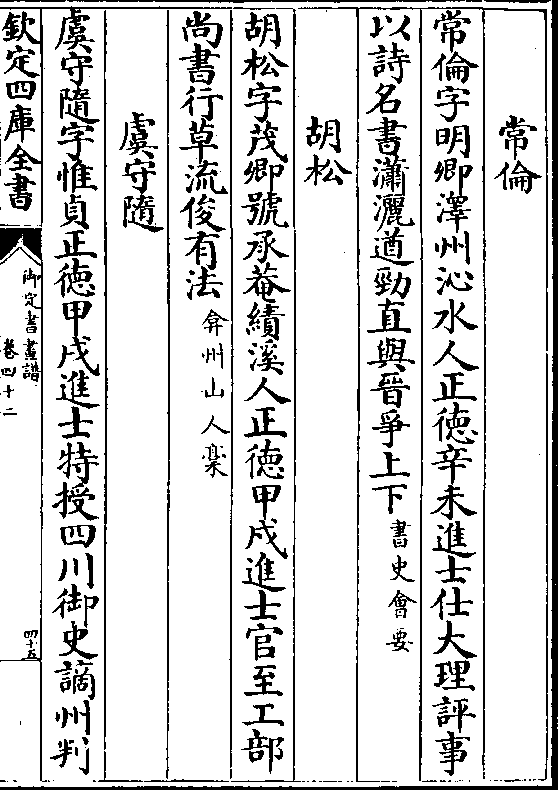 常倫
常倫字明卿澤州沁水人正徳辛未進士仕大理評事
以詩名書瀟灑遒勁直與晉爭上下書史會要
胡松
胡松字茂卿號承菴績溪人正徳甲戌進士官至工部
尚書行草流俊有法弇州山人稾
虞守隨
虞守隨字惟貞正徳甲戌進士特授四川御史謫州判
欽定四庫全書
御定書畫譜
卷四十二
四十五